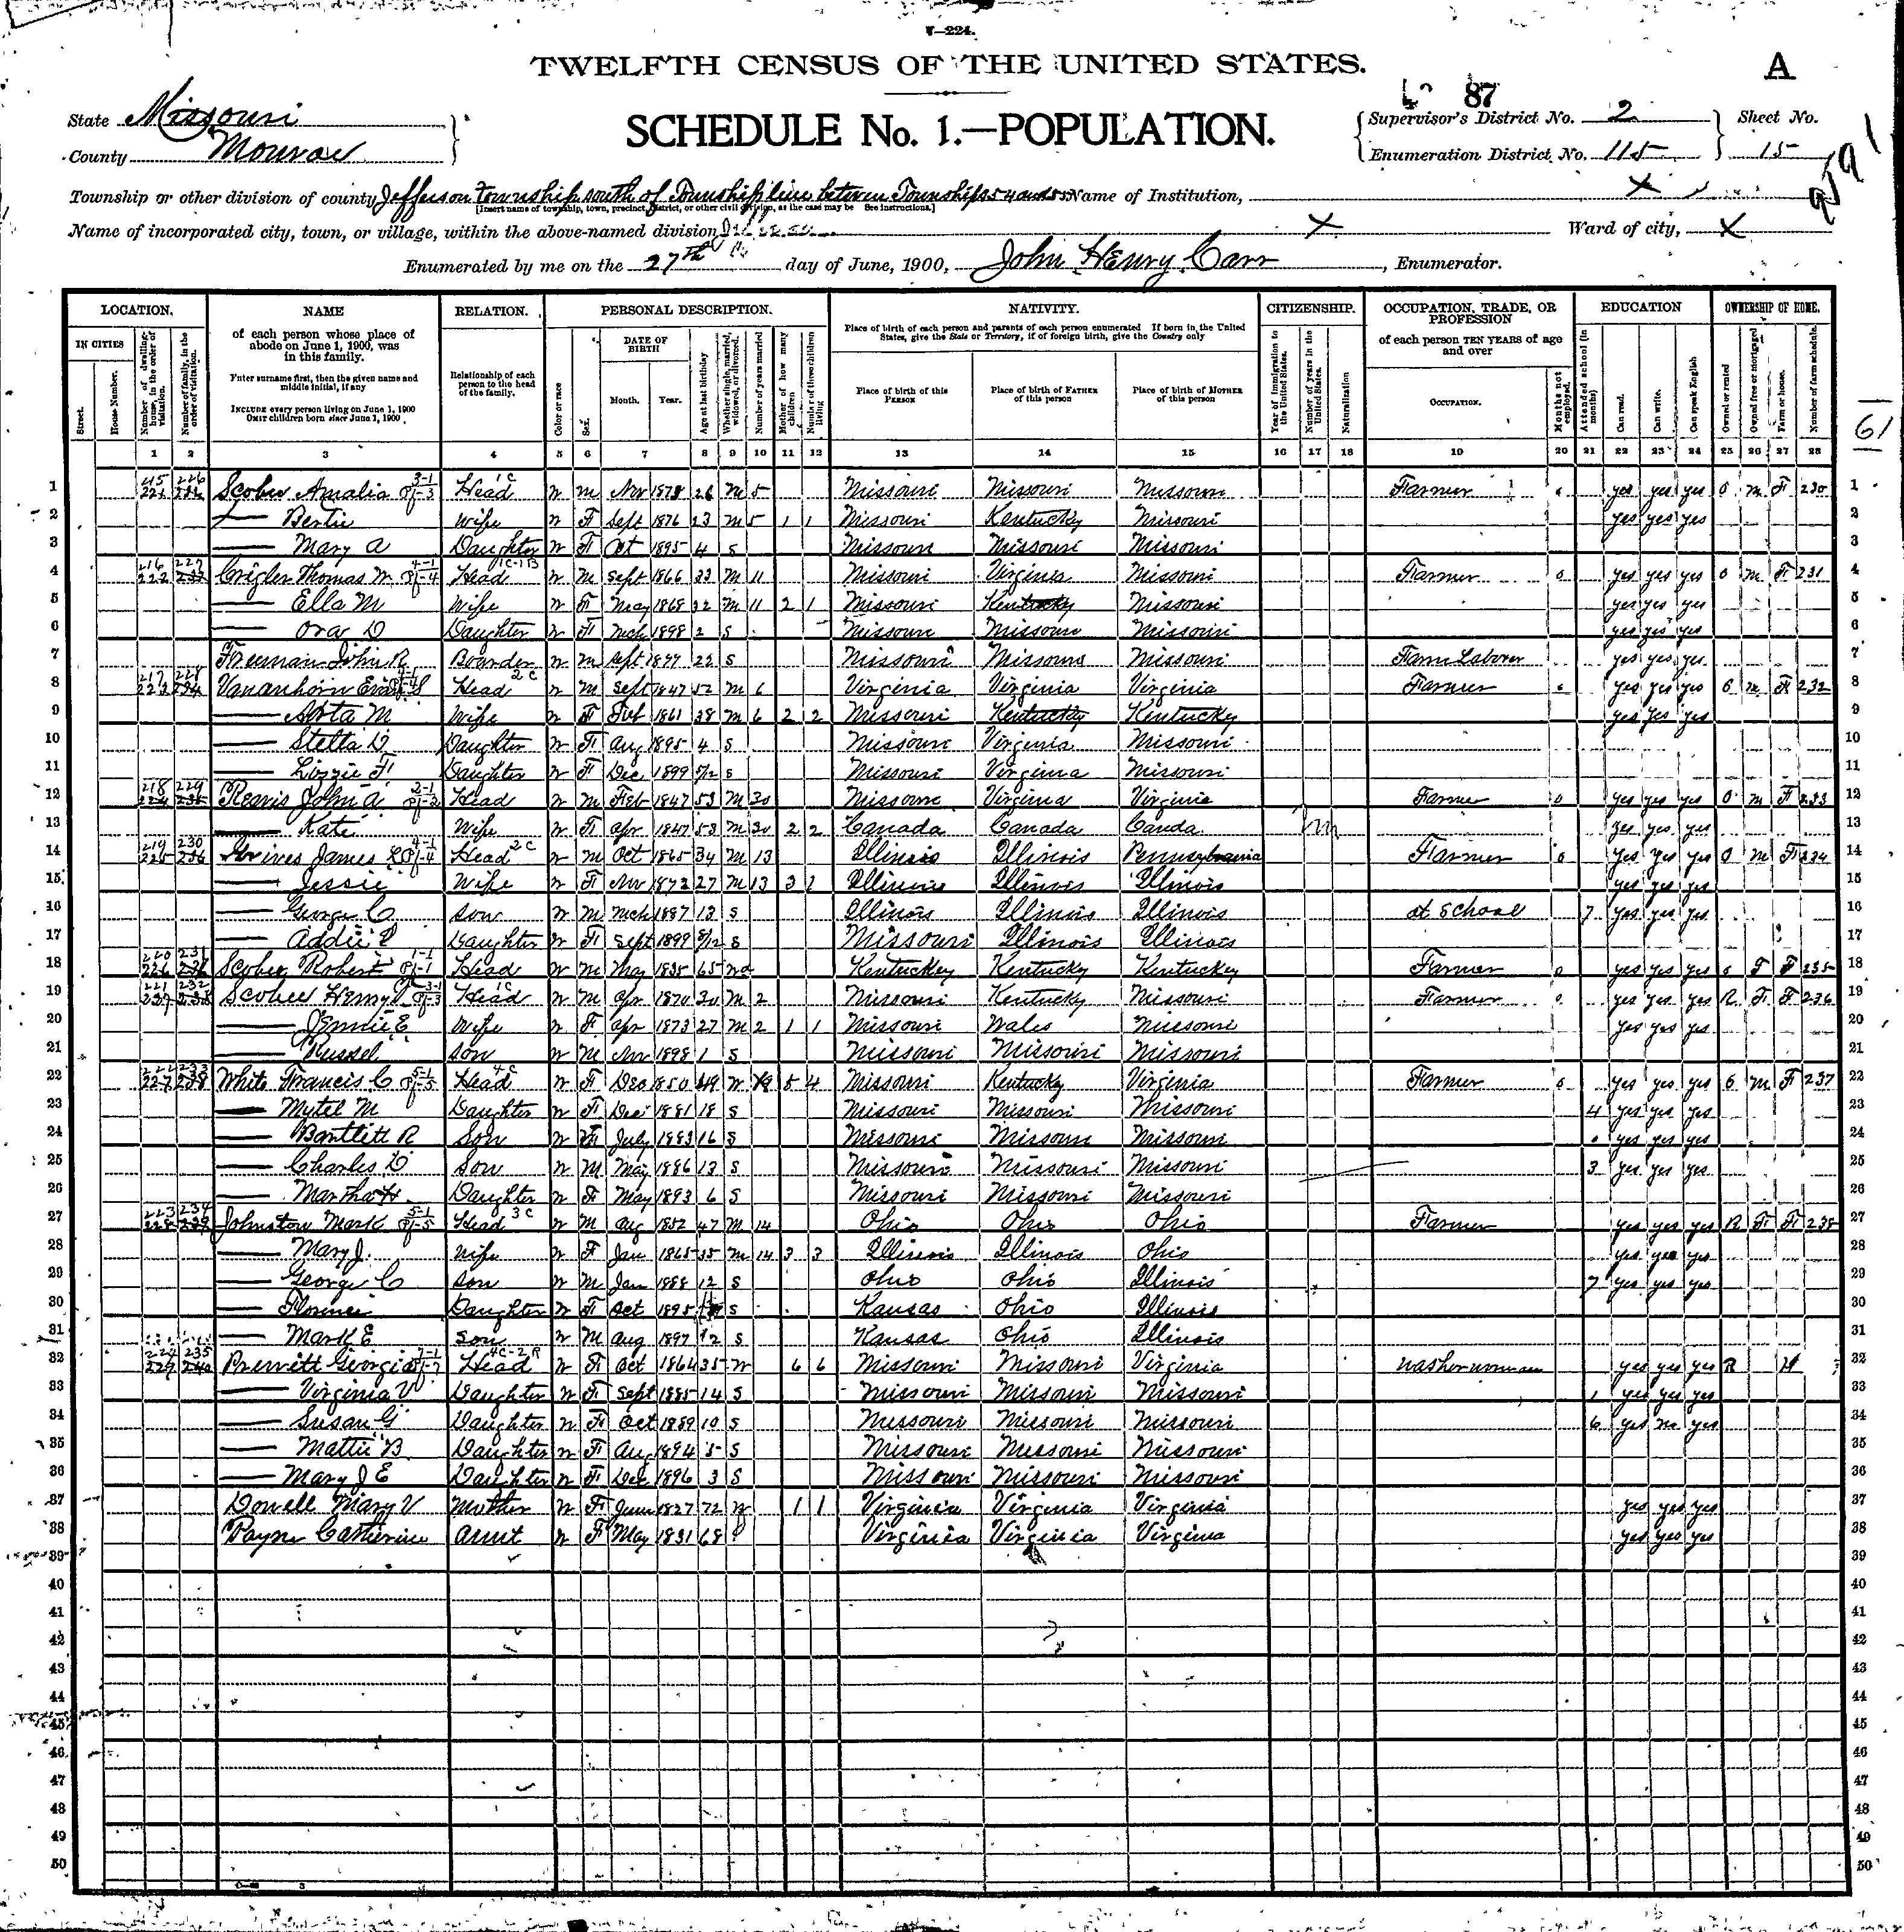 V—224.
TWELFTH CENSUS OF THE UNITED STATES.
A
87
State Missouri
County Monroe
SCHEDULE No. 1.—POPULATION.
Supervisor's District No. 2
Enumeration District No. 115
Sheet No.
15
Township or other division of county Jefferson township south of Township line between Townships 54 and 55 Name of Institution, X
[Insert name of township, town, precinct, district, or other civil division, as the case may be See instructions.]
Name of incorporated city, town, or village, within the above-named division X Ward of city, X
Enumerated by me on the 27th day of June, 1900, John Henry Carr, Enumerator.
61
LOCATION.
IN CITIES
Street.
House Number.
Number of dwelling-house, in the order of visitation.
Number of family, in the order of visitation.
NAME
of each person whose place of abode on June 1, 1900, was in this family.
Enter surname first, then the given name and middle initial, if any
INCLUDE every person living on June 1, 1900
OMIT children born since June 1, 1900
RELATION.
Relationship of each person to the head of the family.
PERSONAL DESCRIPTION.
Color or race
Sex.
DATE OF BIRTH
Month. Year.
Age at last birthday
Whether single, married, widowed, or divorced.
Number of years married
Mother of how many children
Number of these children living
NATIVITY.
Place of birth of each person and parents of each person enumerated If born in the United States, give the State or Territory, if of foreign birth, give the Country only
Place of birth of this PERSON
Place of birth of FATHER of this person
Place of birth of MOTHER of this person
CITIZENSHIP.
Year of immigration to the United States.
Number of years in the United States.
Naturalization
OCCUPATION, TRADE, OR PROFESSION
of each person TEN YEARS of age and over
OCCUPATION.
Months not employed.
EDUCATION
Attended school (in months)
Can read.
Can write.
Can speak English
OWNERSHIP OF HOME.
Owned or rented
Owned free or mortgaged
Farm or house.
Number of farm schedule.
1 2 3 4 5 6 7 8 9 10 11 12 13 14 15 16 17 18 19 20 21 22 23 24 25 26 27 28
1 Scobee Amalia Head W M Nov 26 M 5 Missouri Missouri Missouri Farmer 0 yes yes yes O M F 230 1
2 — Bertie Wife W F Sept 1876 23 M 5 1 1 Missouri Kentucky Missouri yes yes yes 2
3 — Mary A Daughter W F Oct 1895 4 S Missouri Missouri Missouri 3
4 216 227 Crigler Thomas W Head W M Sept 1866 33 M 11 Missouri Virginia Missouri Farmer 0 yes yes yes O M F 231 4
5 — Ella M Wife W F May 1868 32 M 11 2 1 Missouri Kentucky Missouri yes yes yes 5
6 — Ora D Daughter W F Mch 1898 2 S Missouri Missouri Missouri yes yes yes 6
7 Freeman John R Boarder W M Sept 1877 22 S Missouri Missouri Missouri Farm Laborer yes yes yes 7
8 217 228 Head W M Sept 1847 52 M 6 Virginia Virginia Virginia Farmer 0 yes yes yes O M F 232 8
9 — M Wife W F Feb 1861 38 M 6 2 2 Missouri Kentucky Kentucky yes yes yes 9
10 — Stella D Daughter W F Aug 1895 4 S Missouri Virginia Missouri 10
11 — Lizzie F Daughter W F Dec 1899 5/12 S Missouri Virginia Missouri 11
12 218 229 Reavis John A Head W M Feb 1847 53 M 30 Missouri Virginia Virginia Farmer 0 yes yes yes O M F 233 12
13 — Kate Wife W F Apr 1847 53 M 30 2 2 Canada Canada Canda yes yes yes 13
14 219 230 James Head W M Oct 1865 34 M 13 Illinois Illinois Pennsylvania Farmer 0 yes yes yes O M F 234 14
15 — Jessie Wife W F Nov 1872 27 M 13 3 Illinois Illinois Illinois yes yes yes 15
16 — George C Son W M Mch 1887 13 S Illinois Illinois Illinois at School 7 yes yes yes 16
17 — Addie Daughter W F Sept 1899 8/12 S Missouri Illinois Illinois 17
18 220 231 Scobee Robert Head W M May 1835 65 Wd Kentuckey Kentucky Kentuckey Farmer 0 yes yes yes O F F 235 18
19 221 232 Scobee Henry Head W M Apr 1870 30 M 2 Missouri Kentucky Missouri Farmer 0 yes yes yes R F F 236 19
20 — Jennie E Wife W F Apr 1873 27 M 2 1 1 Missouri Wales Missouri yes yes yes 20
21 — Russel Son W M Nov 1898 1 S Missouri Missouri Missouri 21
22 222 233 White Francis C Head W F Dec 1850 49 W 5 4 Missouri Kentucky Virginia Farmer 0 yes yes yes O M F 237 22
23 — Mytel M Daughter W F Dec 1881 18 S Missouri Missouri Missouri 4 yes yes yes 23
24 — Bartlett R Son W July 1883 16 S Missouri Missouri Missouri yes yes yes 24
25 — Charles D Son W M May 1886 13 S Missouri Missouri Missouri 3 yes yes yes 25
26 — Martha H Daughter W F May 1893 6 S Missouri Missouri Missouri 26
27 223 234 Johnston Mark Head W M Aug 1852 47 M 14 Ohio Ohio Ohio Farmer yes yes yes R F F 238 27
28 — Mary J. Wife W F Jan 1865 35 M 14 3 3 Illinois Illinois Ohio yes yes yes 28
29 — George C Son W M Jan 1888 12 S Ohio Ohio Illinois 7 yes yes yes 29
30 — Florence Daughter W F Oct 1895 S Kansas Ohio Illinois 30
31 — Mark E Son W M Aug 1897 2 S Kansas Ohio Illinois 31
32 224 235 Prewitt Georgia Head W F Oct 1864 35 W 6 6 Missouri Missouri Virginia washerwoman yes yes yes R H 32
33 — Virginia V Daughter W F Sept 1885 14 S Missouri Missouri Missouri 1 yes yes yes 33
34 — Susan G Daughter W F Oct 1889 10 S Missouri Missouri Missouri 6 yes no yes 34
35 — Mattie B Daughter W F Aug 1894 5 S Missouri Missouri Missouri 35
36 — Mary J E Daughter W F Dec 1896 3 S Missouri Missouri Missouri 36
37 Dowell Mary V Mother W F June 1827 72 W 1 1 Virginia Virginia Virginia yes yes yes 37
38 Payne Catherine Aunt W F May 1831 68 Virginia Virginia Virginia yes yes yes 38
39 39
40 40
41 41
42 42
43 43
44 44
45 45
46 46
47 47
48 48
49 49
50 50